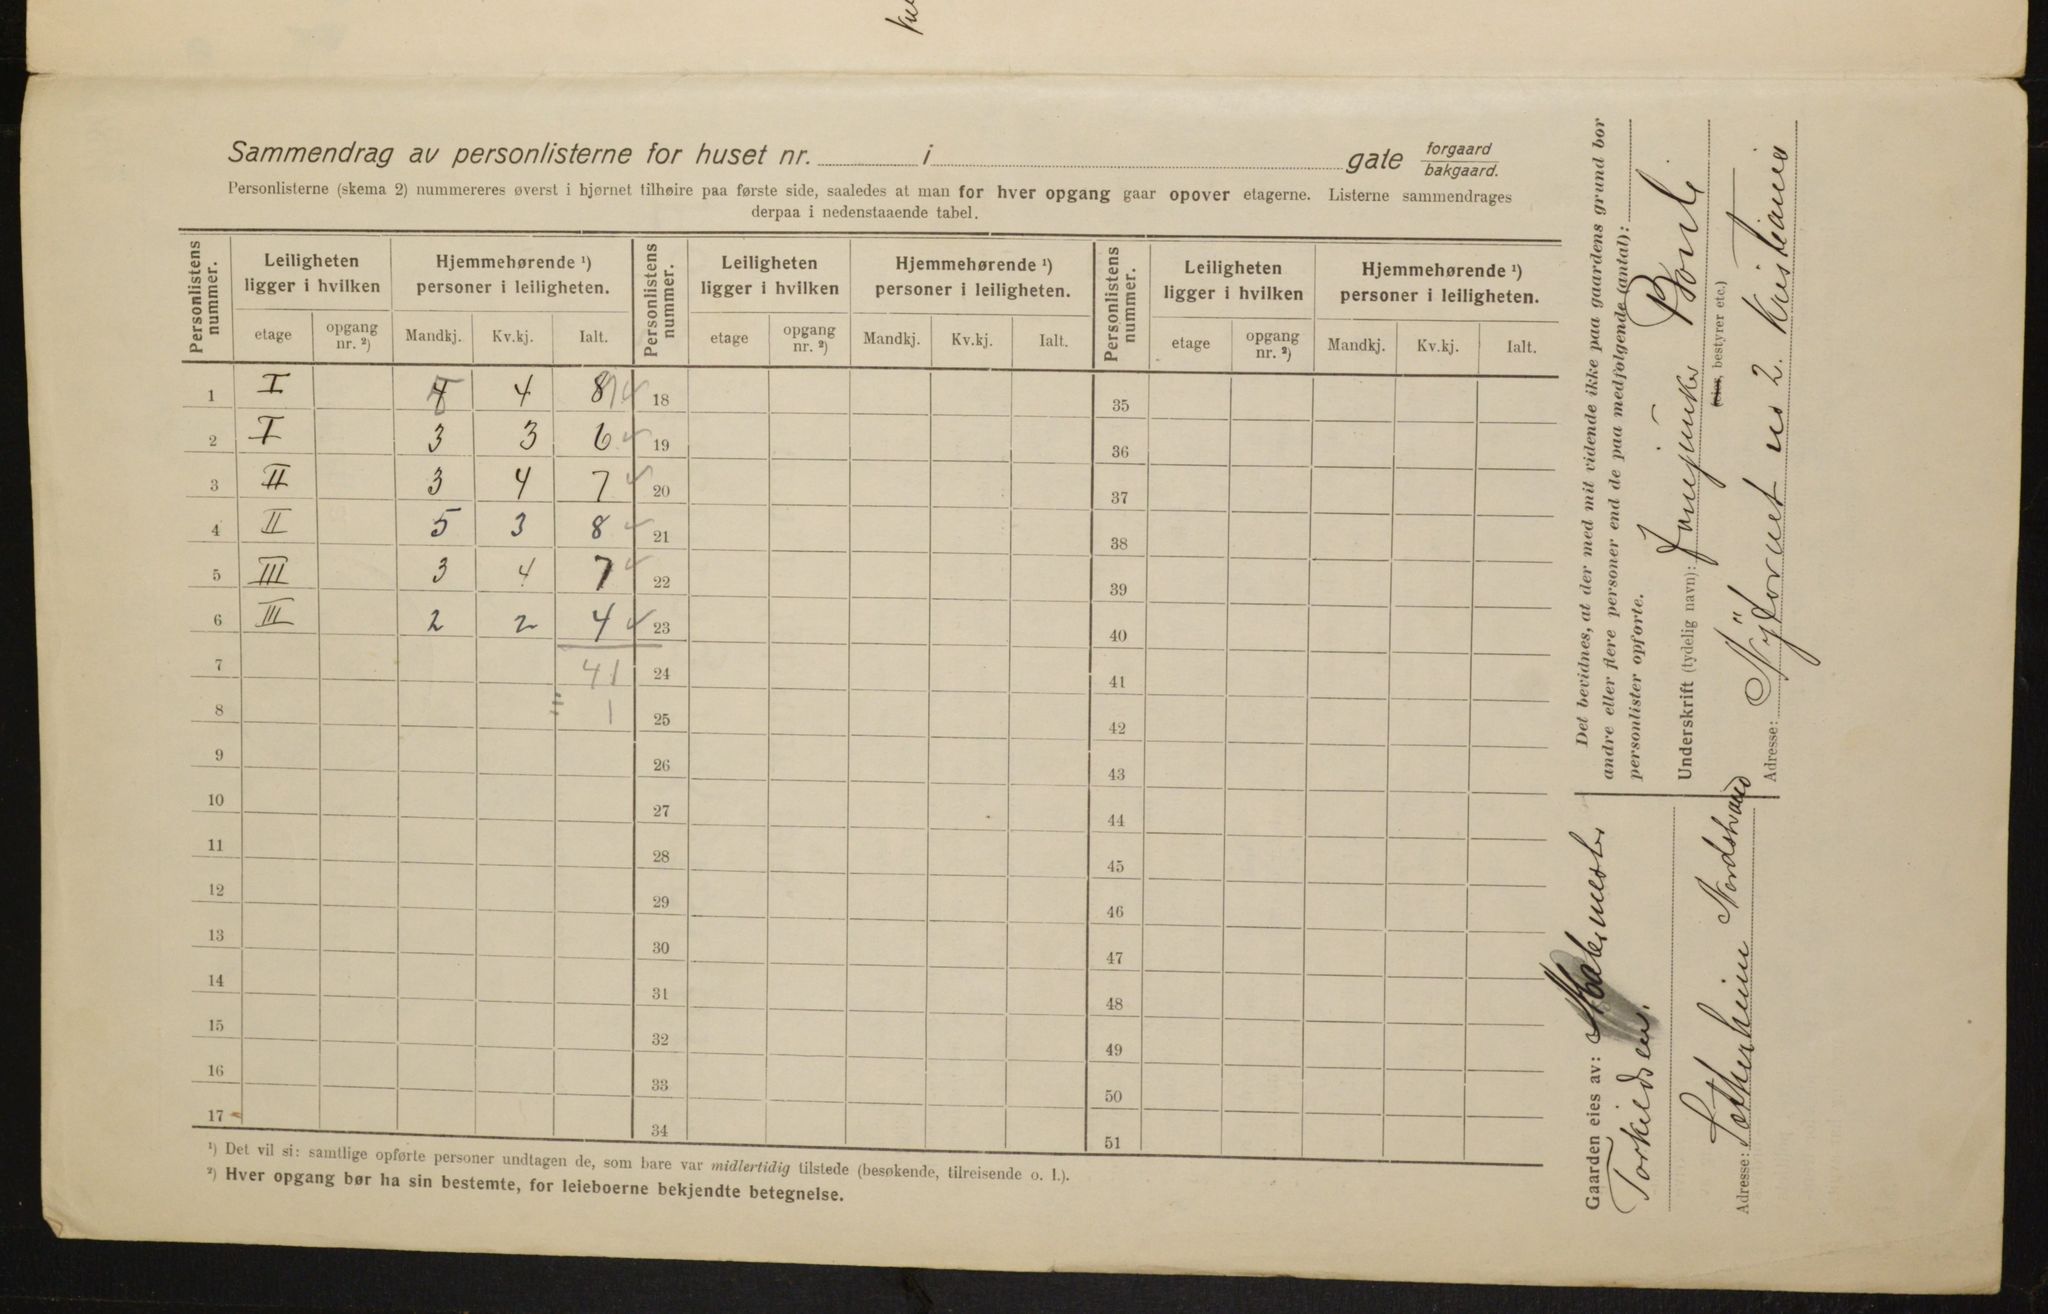 Sammendrag av personlisterne for huset nr. i gate forgaard bakgaard.
Personlisterne (skema 2) nummereres øverst i hjørnet tilhøire paa første side, saaledes at man for hver opgang gaar opover etagerne. Listerne sammendrages
derpaa i nedenstaaende tabel.
Personlistens nummer. Leiligheten ligger i hvilken Hjemmehørende ¹) personer i leiligheten. Personlistens nummer. Leiligheten ligger i hvilken Hjemmehørende ¹) personer i leiligheten. Personlistens nummer. Leiligheten ligger i hvilken Hjemmehørende ¹) personer i leiligheten.
etage opgang nr. ²) Mandkj. Kv.kj. Ialt. etage opgang nr. ²) Mandkj. Kv.kj. Ialt. etage opgang nr. ²) Mandkj. Kv.kj. Ialt.
1 I 4 4 8 18 35
2 I 3 3 6 19 36
3 II 3 4 7 20 37
4 II 5 3 8 21 38
5 III 3 4 7 22 39
6 III 2 2 4 23 40
7 41 24 41
8 1 25 42
9 26 43
10 27 44
11 28 45
12 29 46
13 30 47
14 31 48
15 32 49
16 33 50
17 34 51
¹) Det vil si: samtlige opførte personer undtagen de, som bare var midlertidig tilstede (besøkende, tilreisende o. l.).
²) Hver opgang bør ha sin bestemte, for leieboerne bekjendte betegnelse.
Gaarden eies av: Malermester
Torkildsen.
Adresse: Sætherheim Nordstrand
Det bevidnes, at der med mit vidende ikke paa gaardens grund bor
andre eller flere personer end de paa medfølgende (antal):
personlister opførte.
Underskrift (tydelig navn):
(eier, bestyrer etc.)
Adresse: Nytorvet no 2. Kristiania